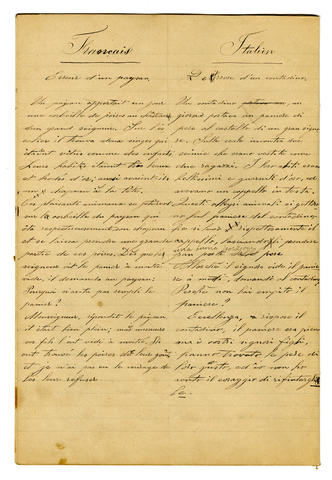 Français
Erreur d'un paysan
Un paysan apportait un jour
une corbeille de poires au château
d'un grand seigneur. Sur l'es
il trouva deux singes qui
étaient vêtus comme des enfants
Leurs habits étaient très beaux
et brodés d'or; ainsi avaient-ils
un chapeau à la tête.
Ces plaisants animaux se jetèrent
sur la corbeille du paysan qui
ôta respectueusement son chapeau
et se laissa prendre une grande
partie de ces poires. Dès que le
seigneur vit le panier à moitié
vide, il demanda au paysan:
Pourquoi n'as-tu pas rempli le
panier?
Monseigneur, répondit le paysan
il était bien plein; mais messieurs
vos fils l'ont vidé à moitié. Ils
ont trouvé les poires de leur goût,
et je n'ai pas eu le courage de
les leur refuser.
Italien
L'Errore d'un contadino
Un contadino, un
giorno portava un paniere di
pere al castello di un gran signo-
re. Sulla scala incontrò due
scimmie che erano vestite come
due ragazzi. I loro abiti erano
bellissimi e guarniti d'oro, ed
avevano un cappello in testa.
Questi animali si gitta-
rono sul paniere del contadino,
che si levò rispettosamente il
cappello, lasciando prendere
gran parte delle pere
Allorchè il signore vide il panie-
re a metà, domandò al contadino,
Perchè non hai empito il
paniere?
Eccellenza, rispose il
contadino, il paniere era pieno
ma i vostri signori figli,
hanno trovato le pere di
loro gusto, ed io non ho
avuto il coraggio di rifiutarglie-
le.